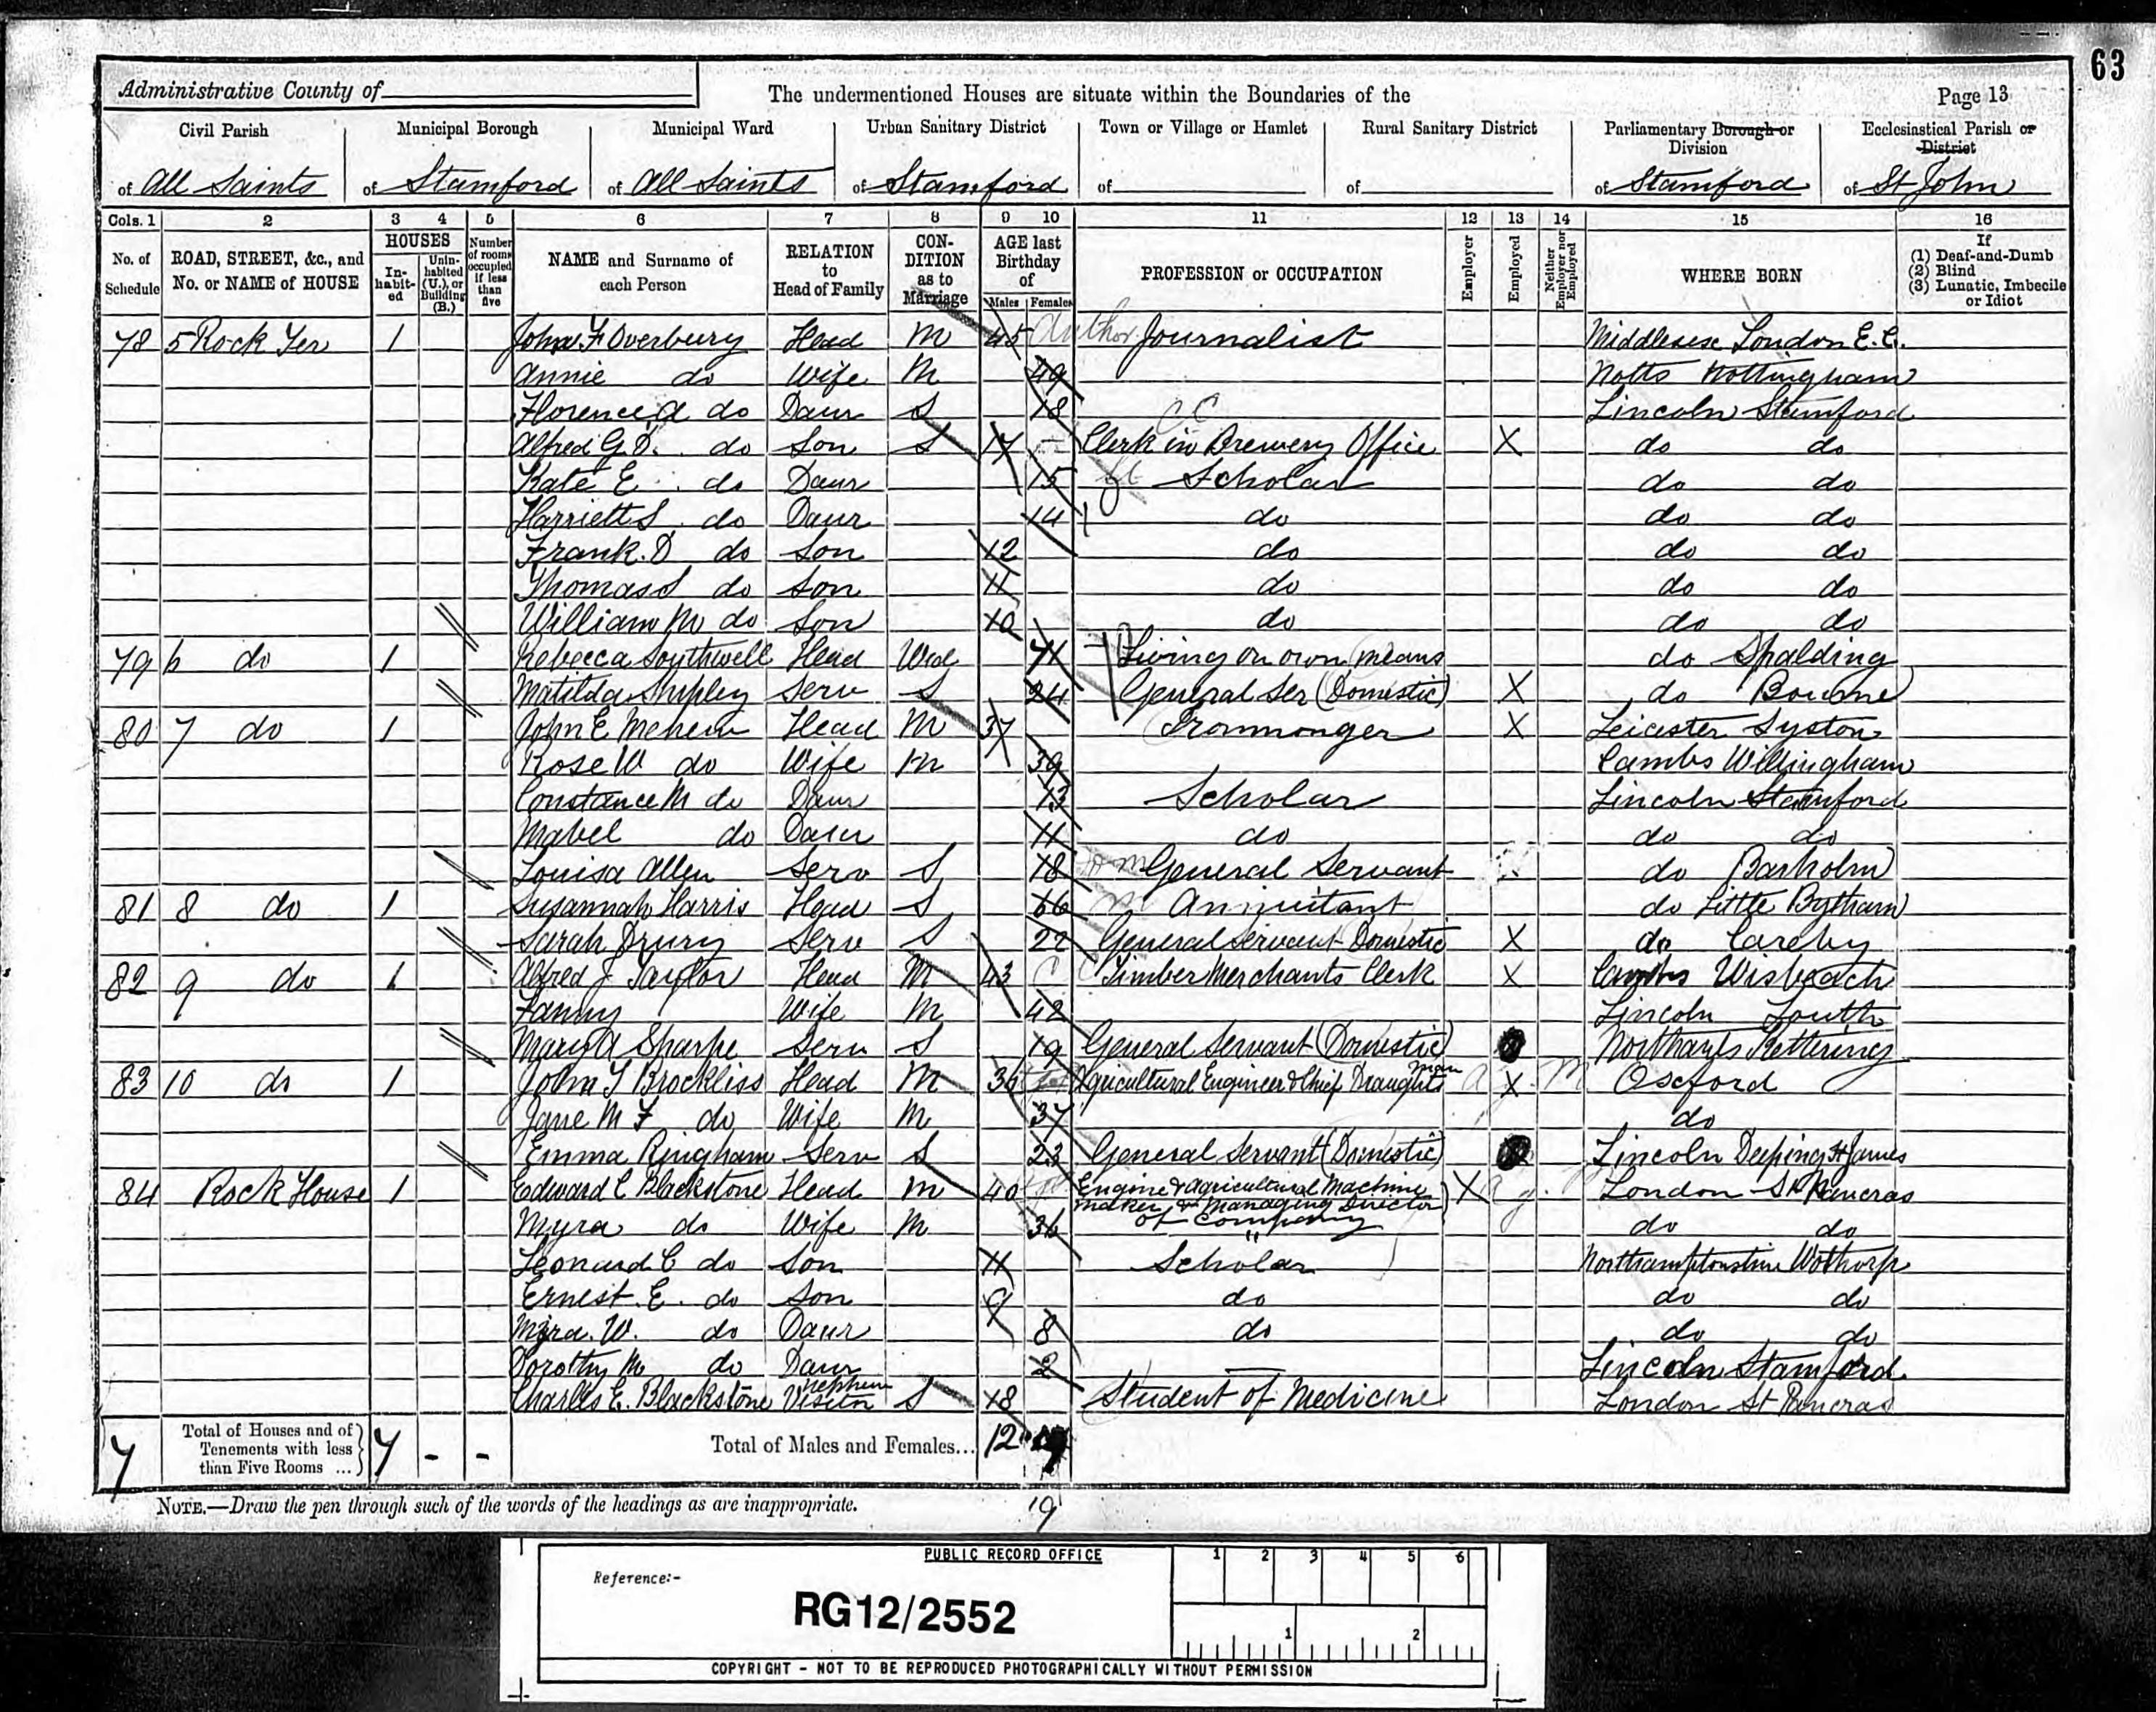 63
Administrative County of
The undermentioned Houses are situate within the Boundaries of the
Page 13
Civil Parish of All Saints
Municipal Borough of Stamford
Municipal Ward of All Saints
Urban Sanitary District of Stamford
Town or Village or Hamlet of
Rural Sanitary District of
Parliamentary Borough or Division of Stamford
Ecclesiastical Parish or District of St John
Cols. 1 2 3 4 5 6 7 8 9 10 11 12 13 14 15 16
No. of Schedule
ROAD, STREET, &c., and No. or NAME of HOUSE
HOUSES
In-habit-ed
Unin-habited (U.), or Building (B.)
Number of rooms occupied if less than five
NAME and Surname of each Person
RELATION to Head of Family
CON-DITION as to Marriage
AGE last Birthday of
Males Females
PROFESSION or OCCUPATION
Employer
Employed
Neither Employer nor Employed
WHERE BORN
If (1) Deaf-and-Dumb (2) Blind (3) Lunatic, Imbecile or Idiot
78 5 Rock Ter 1 John F Overbury Head M 45 Author Journalist Middlesex London E.C.
Annie do Wife M 49 Notts Nottingham
Florence A do Daur S 18 Lincoln Stamford
Alfred G.D. do Son S 17 Clerk in Brewery Office X do do
Kate E. do Daur 15 Scholar do do
Harriett S. do Daur 14 do do do
Frank. D do Son 12 do do do
Thomas S do Son 11 do do do
William M do Son 10 do do do
79 6 do 1 Rebecca Southwell Head Wid 71 Living on own means do Spalding
Matilda Shipley Serv S 24 General Ser (Domestic) X do Bourne
80 7 do 1 John E Head M 37 Ironmonger X Leicester Syston
Rose W do Wife M 39 Cambs Willingham
Constance M do Daur 13 Scholar Lincoln Stamford
Mabel do Daur 11 do do do
Louisa Allen Serv S 18 General Servant do Barholm
81 8 do 1 Susannah Harris Head S 66 Annuitant do Little Bytham
Sarah Drury Serv S 22 General Servant Domestic X do Careby
82 9 do 1 Alfred J Taylor Head M 43 Timber Merchants Clerk X Cambs Wisbeach
Fanny Wife M 42 Lincoln Louth
Mary A Sharpe Serv S 19 General Servant (Domestic) Northants Kettering
83 10 do 1 John T Brockliss Head M 36 Agricultural Engineer & Chief Draughtsman X Oxford
Jane M F do Wife M 37 do
Emma Ringham Serv S 23 General Servant (Domestic) Lincoln Deeping St James
84 Rock House 1 Edward C Blackstone Head M 40 Engine & Agricultural Machine X London St Pancras
maker & Managing Director
of Company
Myra do Wife M 36 do do
Leonard C do Son 11 Scholar Northamptonshire Wothorp
Ernest. E. do Son 9 do do do
Myra. W. do Daur 8 do do do
Dorothy M do Daur 2 Lincoln Stamford
Charles E. Blackstone Nephew Visitor S 18 Student of Medicine London St Pancras
7 Total of Houses and of Tenements with less than Five Rooms ... 7 - -
Total of Males and Females... 12
NOTE.—Draw the pen through such of the words of the headings as are inappropriate.
19
PUBLIC RECORD OFFICE
1 2 3 4 5 6
Reference:-
RG12/2552
1 2
COPYRIGHT - NOT TO BE REPRODUCED PHOTOGRAPHICALLY WITHOUT PERMISSION